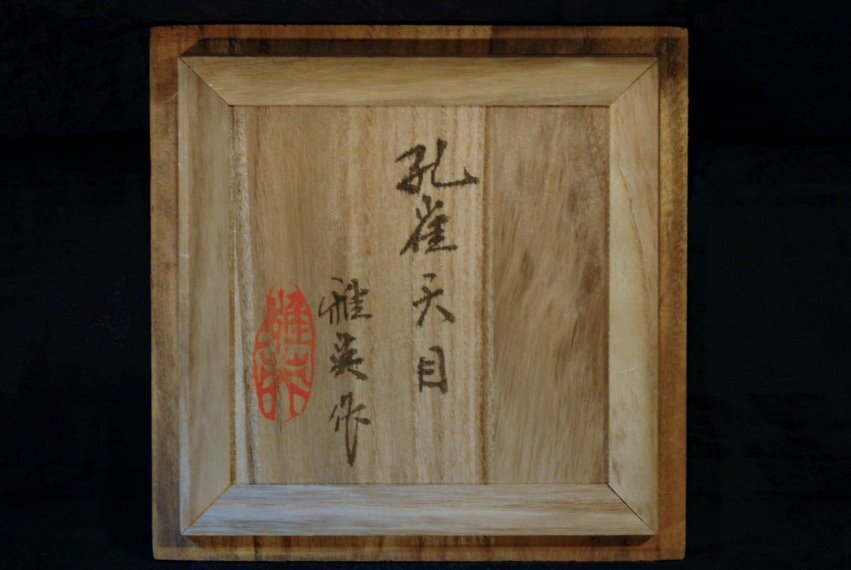 孔雀天目
雅英作